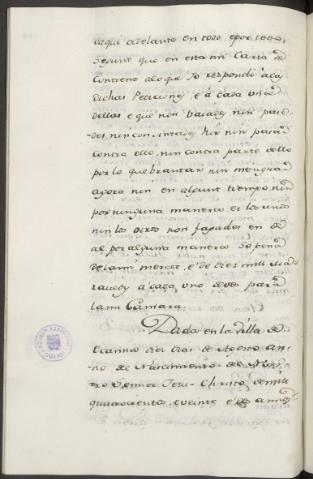 daqui adelante en todo e por todo,
segunt que en esta mi Carta se
Contiene alo que Yo respondi a las
dichas Peticiones e a cada una
dellas e que non vaiades nin pase
des, nin consintades hir nin pasar
contra ello, nin contra parte dello
por lo quebrantar nin menguar
agora nin en algunt tiempo, nin
por ninguna manera, e los unos
nin los otros non fagades en de
al por alguna manera, so pena
de la mi merced, e de diez mil Mara
vedis a cada uno de vos para
la mi Camara.
Dada en la Villa de
Ocanna diez dias de Agosto an
no de Nascimiento de Nues
tro Sennor Jesu-Christo, de mill
quatrocientos, e veinte e dos annos